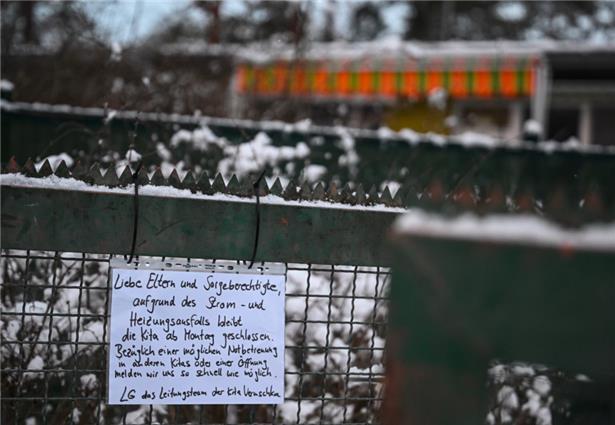 Liebe Eltern und Sorgeberechtigte,
aufgrund des Strom- und
Heizungsausfalls bleibt
die Kita ab Montag geschlossen.
Bezüglich einer möglichen Notbetreuung
in anderen Kitas oder einer Öffnung
melden wir uns so schnell wie möglich.
LG das Leitungsteam der Kita Vernuschka